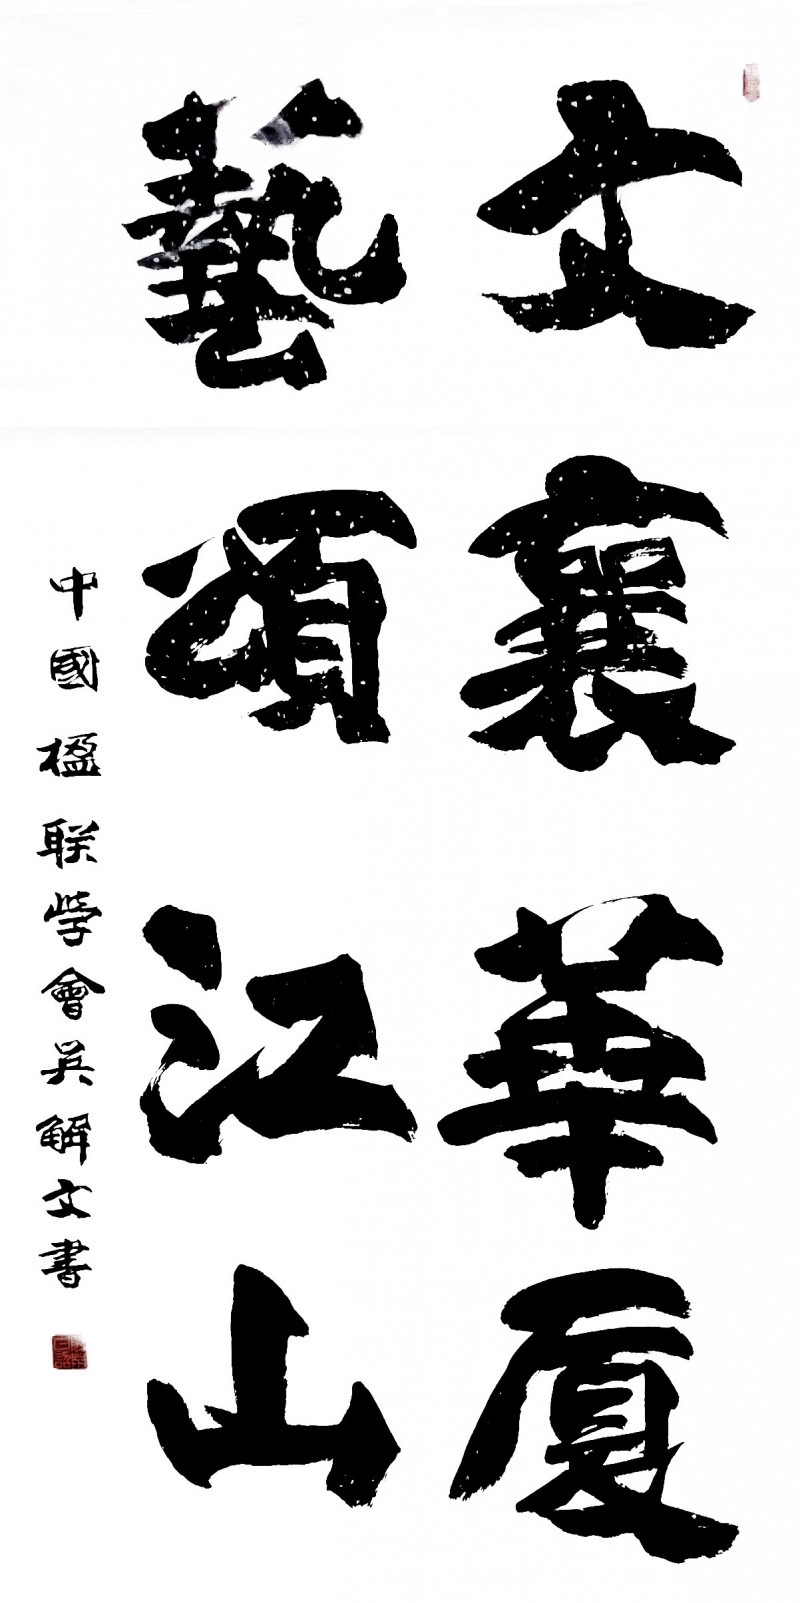 文襄華厦
藝頌江山
中國楹联学會吴解文書